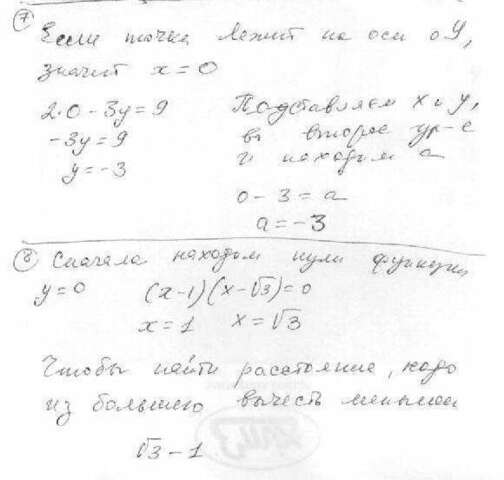 7 Если точка лежит на оси оУ,
значит x = 0
2·0 - 3y = 9
-3y = 9
y = -3
Подставляем x и y,
во второе ур-е
и находим a
0 - 3 = a
a = -3
8 Сначала находим нули функции
y = 0 (x-1)(x-√3)=0
x = 1 x = √3
Чтобы найти расстояние, надо
из большего вычесть меньшее
√3 - 1